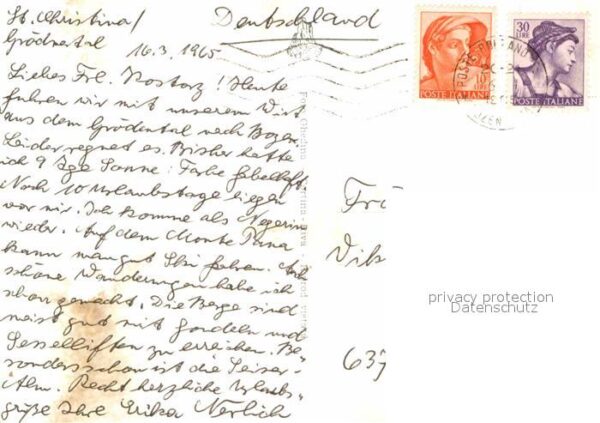 St. Christina/
Grödnertal
16.3.1965
Liebes Frl. Rostorz! Heute
fuhren wir mit unserem Wirt
aus dem Grödental nach Bozen.
Leider regnet es. Bisher hatte
ich 9 Tge Sonne: Farbe fabelhaft.
Noch 10 Urlaubstage liegen
vor mir. Ich komme als Negerin
wieder. Auf dem Monte Pana
kann man gut Ski fahren. Auch
schöne Wanderungen habe ich
schon gemacht. Die Berge sind
meist gut mit Gondeln und
Sesselliften zu erreichen. Be-
sonders schön ist die Seiser-
Alm. Recht herzliche Urlaubs-
grüße Ihre Erika Nerlich
Deutschland
30
LIRE
POSTE ITALIANE
POSTE ITALIANE
Frä
637
privacy protection
Datenschutz